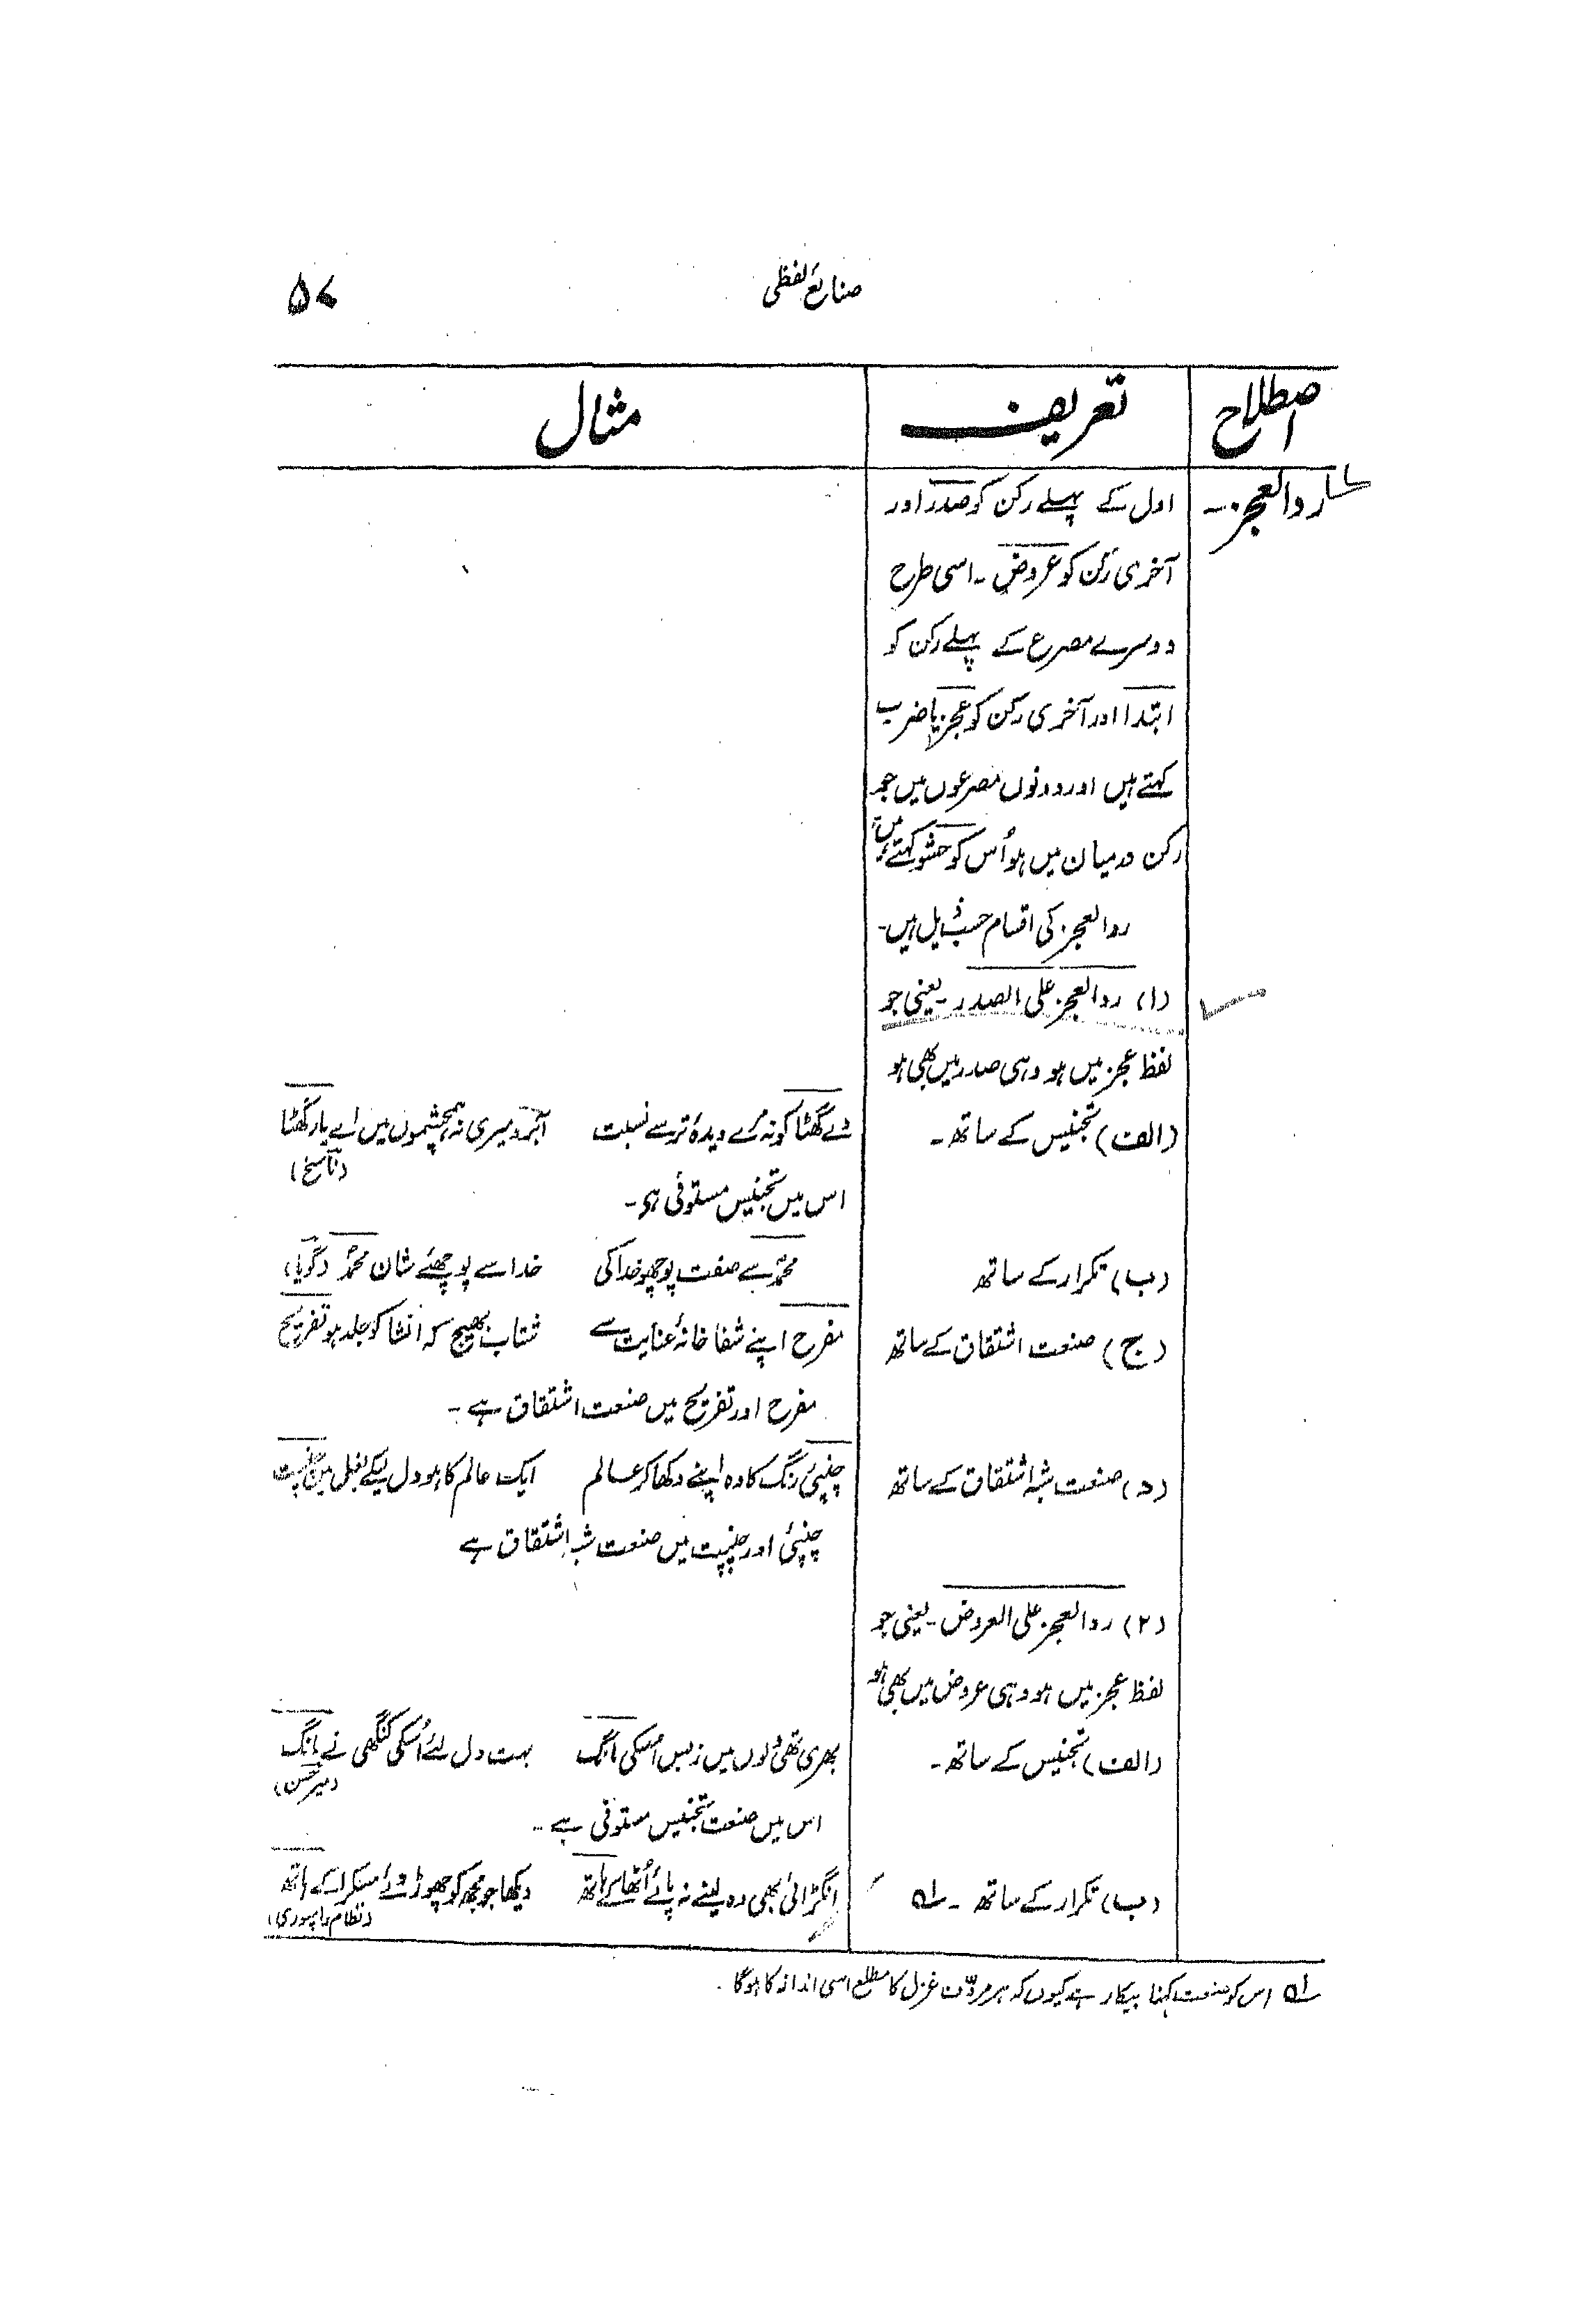 صنایع لفظی
۵۷
اصطلاح
تعریف
مثال
ردالعجز۔
اول کے پہلے رکن کو صدر اور
آخری رکن کو عروض ۔ اسی طرح
دوسرے مصرع کے پہلے رکن کو
ابتدا اور آخری رکن کو عجز یا ضرب
کہتے ہیں اور دونوں مصرعوں میں جو
رکن درمیان میں ہو اُس کو حشو کہتے ہیں
ردالعجز کی اقسام حسب ذیل ہیں۔
(۱) ردالعجز علی الصدر ۔ یعنی جو
لفظ عجز میں ہو وہی صدر میں بھی ہو
(الف) تجنیس کے ساتھ۔
دے گھٹا کو نہ مرے دیدۂ تر سے نسبت آبرو میری نہ ہمچشموں میں اے یار گھٹا
(ناسخ)
اس میں تجنیس مستوفی ہو۔
(ب) تکرار کے ساتھ
محمدؐ سے صفت پوچھو خدا کی خدا سے پوچھئے شان محمدؐ (گویا)
(ج) صنعت اشتقاق کے ساتھ
مفرح اپنے شفا خانۂ عنایت سے شتاب بھیج کہ انشا کو جلد ہو تفریح
مفرح اور تفریح میں صنعت اشتقاق ہے۔
(د) صنعت شبہ اشتقاق کے ساتھ
چنپئی رنگ کا وہ اپنے دکھا کر عالم ایک عالم کا ہو دل لیکے بغل میں چنپت
چنپئی اور چنپت میں صنعت شبہ اشتقاق ہے
(۲) ردالعجز علی العروض ۔ یعنی جو
لفظ عجز میں ہو وہی عروض میں بھی ہو
(الف) تجنیس کے ساتھ۔
بھری تھی دلوں میں زبس اُسکی مانگ بہت دل لئے اُسکی کنگھی نے مانگ
(میر حسن)
اس میں صنعت تجنیس مستوفی ہے۔
(ب) تکرار کے ساتھ ۔ ؎۱
انگڑائی بھی وہ لینے نہ پائے اُٹھا کے ہاتھ دیکھا جو مجھ کو چھوڑ دئے مسکرا کے ہاتھ
(نظام رامپوری)
؎۱ اس کو صنعت کہنا بیکار ہے کیوں کہ ہر مردّف غزل کا مطلع اسی انداز کا ہوگا۔